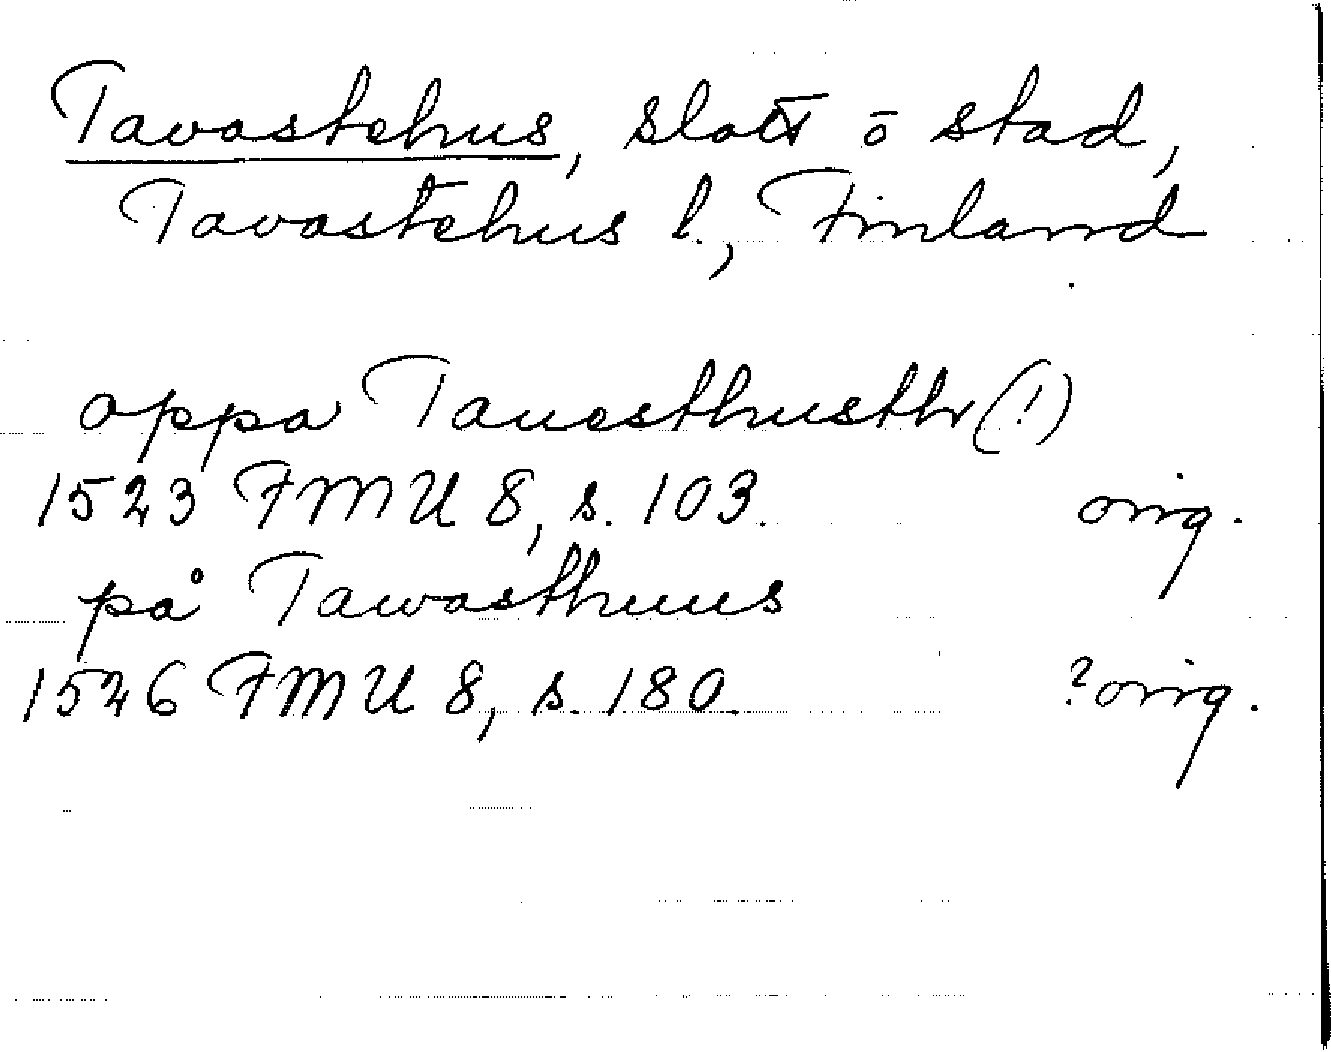 Tavastehus, slott ō stad,
Tavastehus l., Finland
oppa Tauesthusth (!)
1523 FMU 8, s. 103. orig.
på Tawasthuus
1526 FMU 8, s. 180. ? orig.